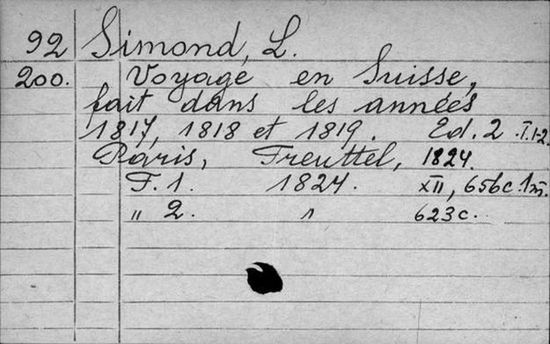 92 Simond, L.
200. Voyage en Suisse,
fait dans les années
1817, 1818 et 1819. Ed. 2. T.1-2.
Paris, Treuttel, 1824.
T. 1. 1824. XII, 656c. 1m.
" 2. " 623c.